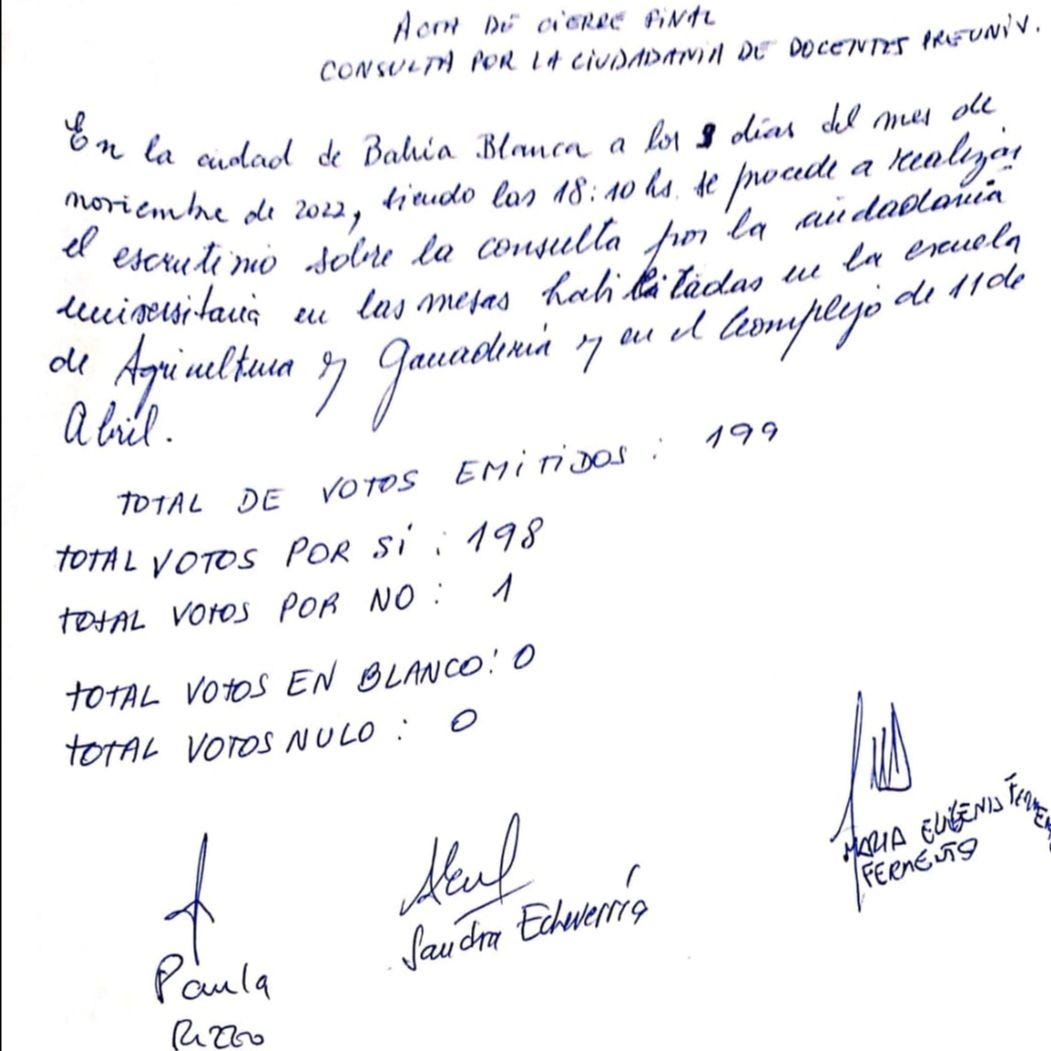 ACTA DE CIERRE FINAL
CONSULTA POR LA CIUDADANIA DE DOCENTES PREUNIV.
En la ciudad de Bahía Blanca a los 9 días del mes de
noviembre de 2022, siendo las 18:10 hs. se procede a realizar
el escrutinio sobre la consulta por la ciudadanía
universitaria en las mesas habilitadas en la escuela
de Agricultura y Ganadería y en el Complejo de 11 de
Abril.
TOTAL DE VOTOS EMITIDOS : 199
TOTAL VOTOS POR SÍ : 198
TOTAL VOTOS POR NO : 1
TOTAL VOTOS EN BLANCO: 0
TOTAL VOTOS NULO : 0
MARIA EUGENIA
Sandra Echeverría
Paula
Rizzo